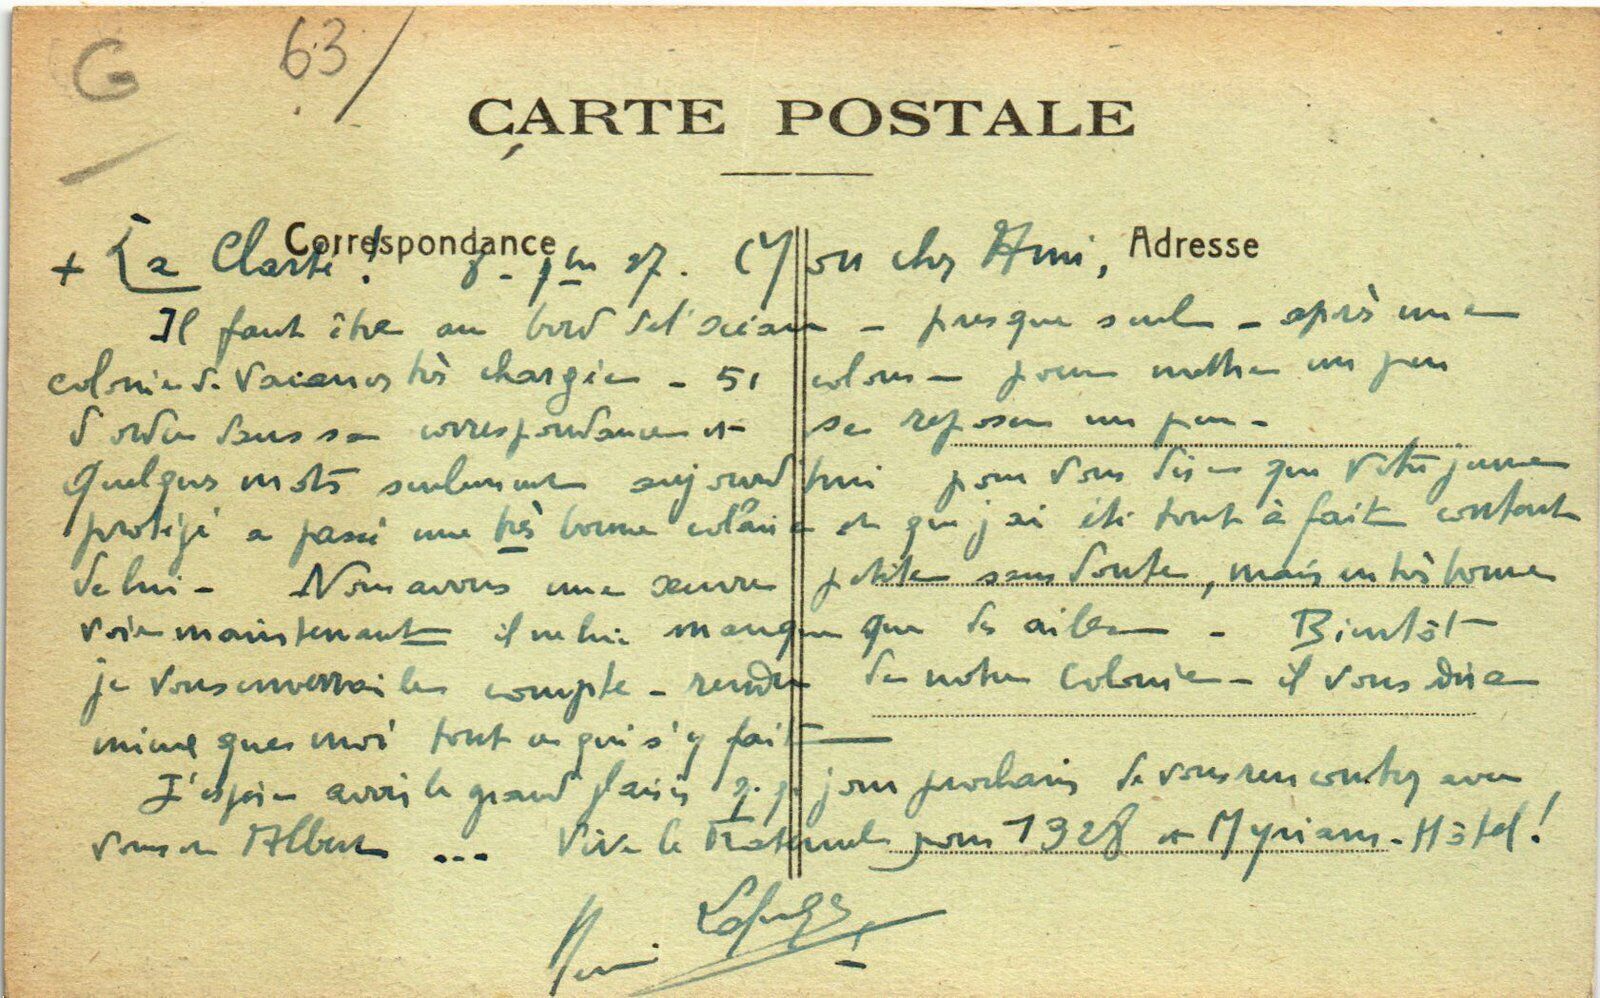 G 63/
CARTE POSTALE
Correspondance
Adresse
+ La Clarté! 8 - 7bre 27. Mon cher Ami,
Il faut être au bord de l'océan - presque seul - après une
colonie de vacances très chargée - 51 colons - pour mettre un peu
d'ordre dans sa correspondance et se reposer un peu -
Quelques mots seulement aujourd'hui pour vous dire que votre jeune
protégé a passé une très bonne colonie et que j'ai été tout à fait content
de lui - Nous avons une œuvre petite sans doute, mais en très bonne
voie maintenant il ne lui manque que des ailes - Bientôt
je vous enverrai le compte-rendu de notre Colonie - il vous dira
mieux que moi tout ce qui s'y fait -
J'espère avoir le grand plaisir q.q. jour prochain de vous rencontrer avec
Albert ... Vive la Fraternelle pour 1928 et Myriam-Hôtel!
Henri